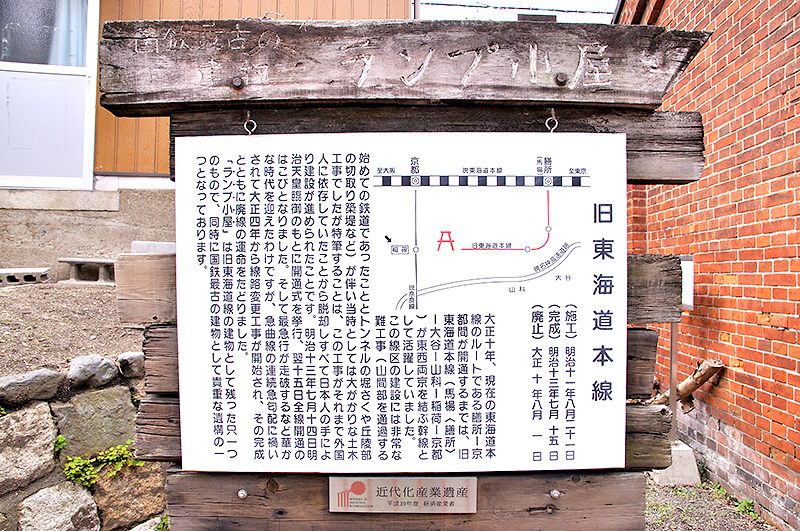 国鉄最古の
建物
ランプ小屋
旧東海道本線
(施工) 明治十一年八月二十一日
(完成) 明治十三年七月十五日
(廃止) 大正十年八月一日
至大阪
京都
現東海道本線
膳所
(馬場)
至東京
稲荷
旧東海道本線
現名神高速道路
大谷
山科
現奈良線
大正十年、現在の東海道本
線のルートである膳所ー京
都間が開通するまでは、旧
東海道本線(馬場<膳所>
ー大谷ー山科ー稲荷ー京都
)が東西両京を結ぶ幹線と
して活躍していました。
この線区の建設には非常な
難工事(山間部を通過する
始めての鉄道であったこととトンネルの堀さくや丘陵部
の切取り築堤など)が伴い当時としては大がかりな土木
工事でしたが特筆することは、この工事がそれまで外国
人に依存していたことから脱却しすべて日本人の手によ
り建設が進められたことです。明治十三年七月十四日明
治天皇臨御のもとに開通式を挙行、翌十五日全線開通の
はこびとなりました。そして最急行が走破するなど華か
な時代を迎えたわけですが、急曲線の連続急勾配に禍い
されて大正四年から線路変更工事が開始され、その完成
とともに廃線の運命をたどりました。
「ランプ小屋」は旧東海道線の建物として残った只一つ
のもので、同時に国鉄最古の建物として貴重な遺構の一
つとなっております。
近代化産業遺産
平成20年度 経済産業省